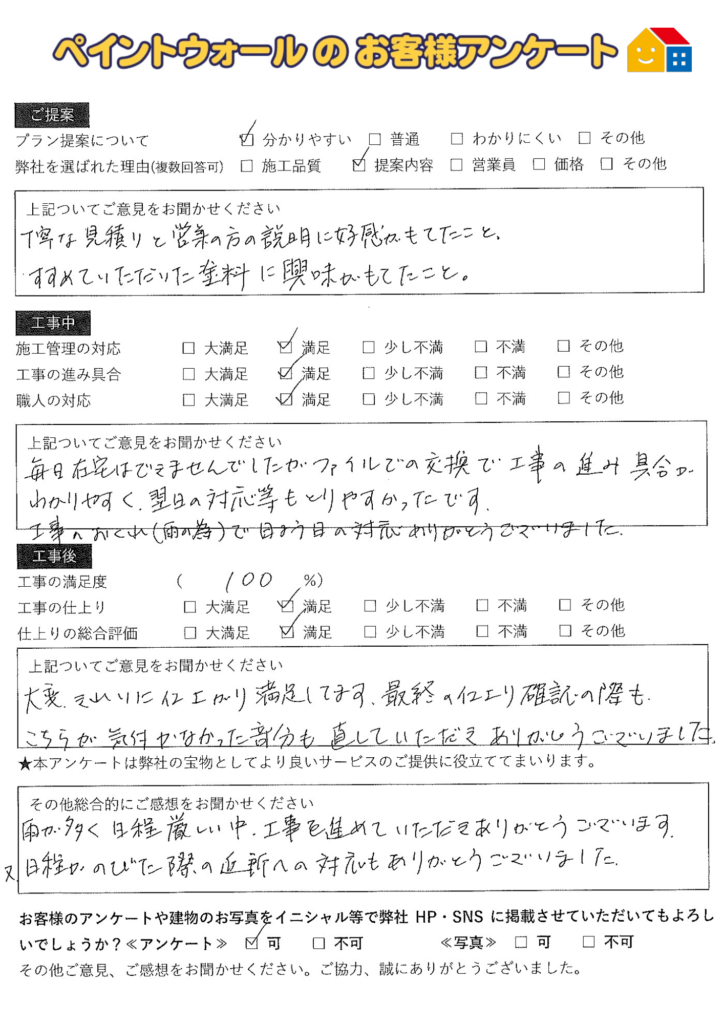 ペイントウォール の お客様アンケート
ご提案
プラン提案について ☑ 分かりやすい □ 普通 □ わかりにくい □ その他
弊社を選ばれた理由(複数回答可) □ 施工品質 ☑ 提案内容 □ 営業員 □ 価格 □ その他
上記ついてご意見をお聞かせください
丁寧な見積りと営業の方の説明に好感がもてたこと、
すすめていただいた塗料に興味がもてたこと。
工事中
施工管理の対応 □ 大満足 ☑ 満足 □ 少し不満 □ 不満 □ その他
工事の進み具合 □ 大満足 ☑ 満足 □ 少し不満 □ 不満 □ その他
職人の対応 □ 大満足 ☑ 満足 □ 少し不満 □ 不満 □ その他
上記ついてご意見をお聞かせください
毎日在宅はできませんでしたがファイルでの交換で工事の進み具合が
わかりやすく、翌日の対応等もとりやすかったです.
工事のおくれ(雨の為)で日よう日の対応ありがとうございました.
工事後
工事の満足度 ( 100 %)
工事の仕上り □ 大満足 ☑ 満足 □ 少し不満 □ 不満 □ その他
仕上りの総合評価 □ 大満足 ☑ 満足 □ 少し不満 □ 不満 □ その他
上記ついてご意見をお聞かせください
大変、きれいに仕上がり満足してます、最終の仕上り確認の際も、
こちらが気付かなかった部分も直していただきありがとうございました.
★本アンケートは弊社の宝物としてより良いサービスのご提供に役立ててまいります。
その他総合的にご感想をお聞かせください
雨が多く日程厳しい中、工事を進めていただきありがとうございます.
又、日程がのびた際の近所への対応もありがとうございました.
お客様のアンケートや建物のお写真をイニシャル等で弊社 HP・SNS に掲載させていただいてもよろし
いでしょうか？≪アンケート≫ ☑ 可 □ 不可 ≪写真≫ □ 可 □ 不可
その他ご意見、ご感想をお聞かせください。ご協力、誠にありがとうございました。